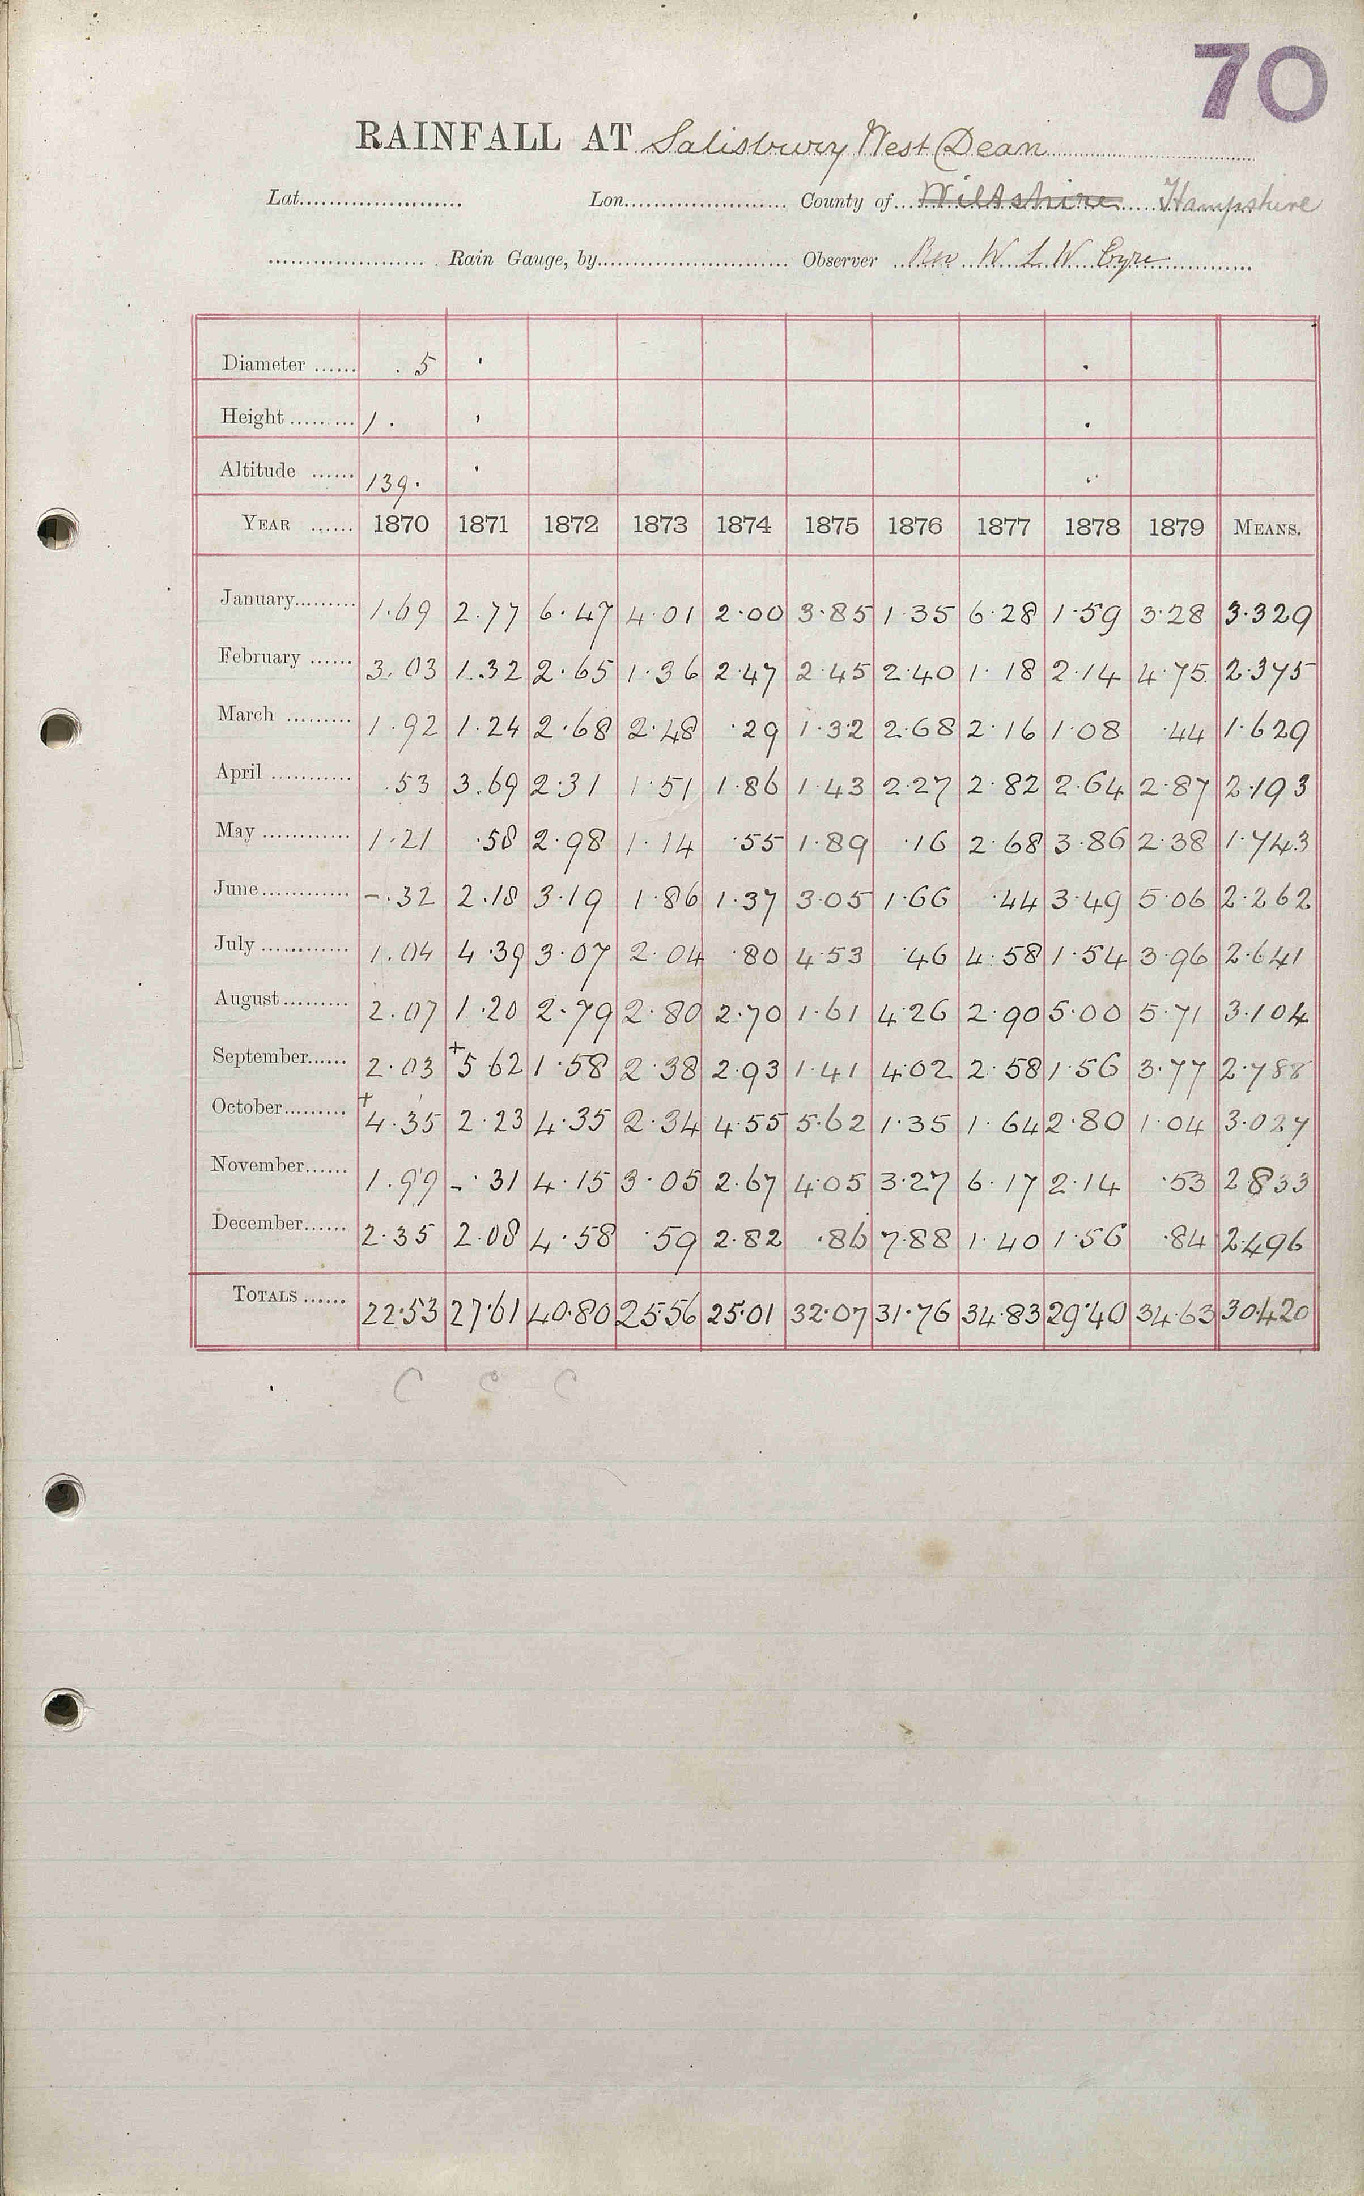 70
RAINFALL AT Salisbury West Dean
Lat. Lon. County of Wiltshire Hampshire
Rain Gauge, by Observer Rev W L W Eyre
Diameter ...... .5
Height ......... 1.
Altitude ...... 139.
YEAR ...... 1870 1871 1872 1873 1874 1875 1876 1877 1878 1879 MEANS.
January......... 1.69 2.77 6.47 4.01 2.00 3.85 1.35 6.28 1.59 3.28 3.329
February ...... 3.03 1.32 2.65 1.36 2.47 2.45 2.40 1.18 2.14 4.75 2.375
March ......... 1.92 1.24 2.68 2.48 .29 1.32 2.68 2.16 1.08 .44 1.629
April ........... .53 3.69 2.31 1.51 1.86 1.43 2.27 2.82 2.64 2.87 2.193
May ............ 1.21 .58 2.98 1.14 .55 1.89 .16 2.68 3.86 2.38 1.743
June............ -.32 2.18 3.19 1.86 1.37 3.05 1.66 .44 3.49 5.06 2.262
July ............ 1.04 4.39 3.07 2.04 .80 4.53 .46 4.58 1.54 3.96 2.641
August......... 2.07 1.20 2.79 2.80 2.70 1.61 4.26 2.90 5.00 5.71 3.104
September...... 2.03 +5.62 1.58 2.38 2.93 1.41 4.02 2.58 1.56 3.77 2.788
October......... +4.35 2.23 4.35 2.34 4.55 5.62 1.35 1.64 2.80 1.04 3.027
November...... 1.99 -.31 4.15 3.05 2.67 4.05 3.27 6.17 2.14 .53 2.833
December...... 2.35 2.08 4.58 .59 2.82 .86 7.88 1.40 1.56 .84 2.496
TOTALS ...... 22.53 27.61 40.80 25.56 25.01 32.07 31.76 34.83 29.40 34.63 30.420
C C C